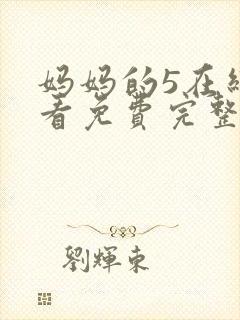 妈妈的5在线
看免费完整
劉輝東